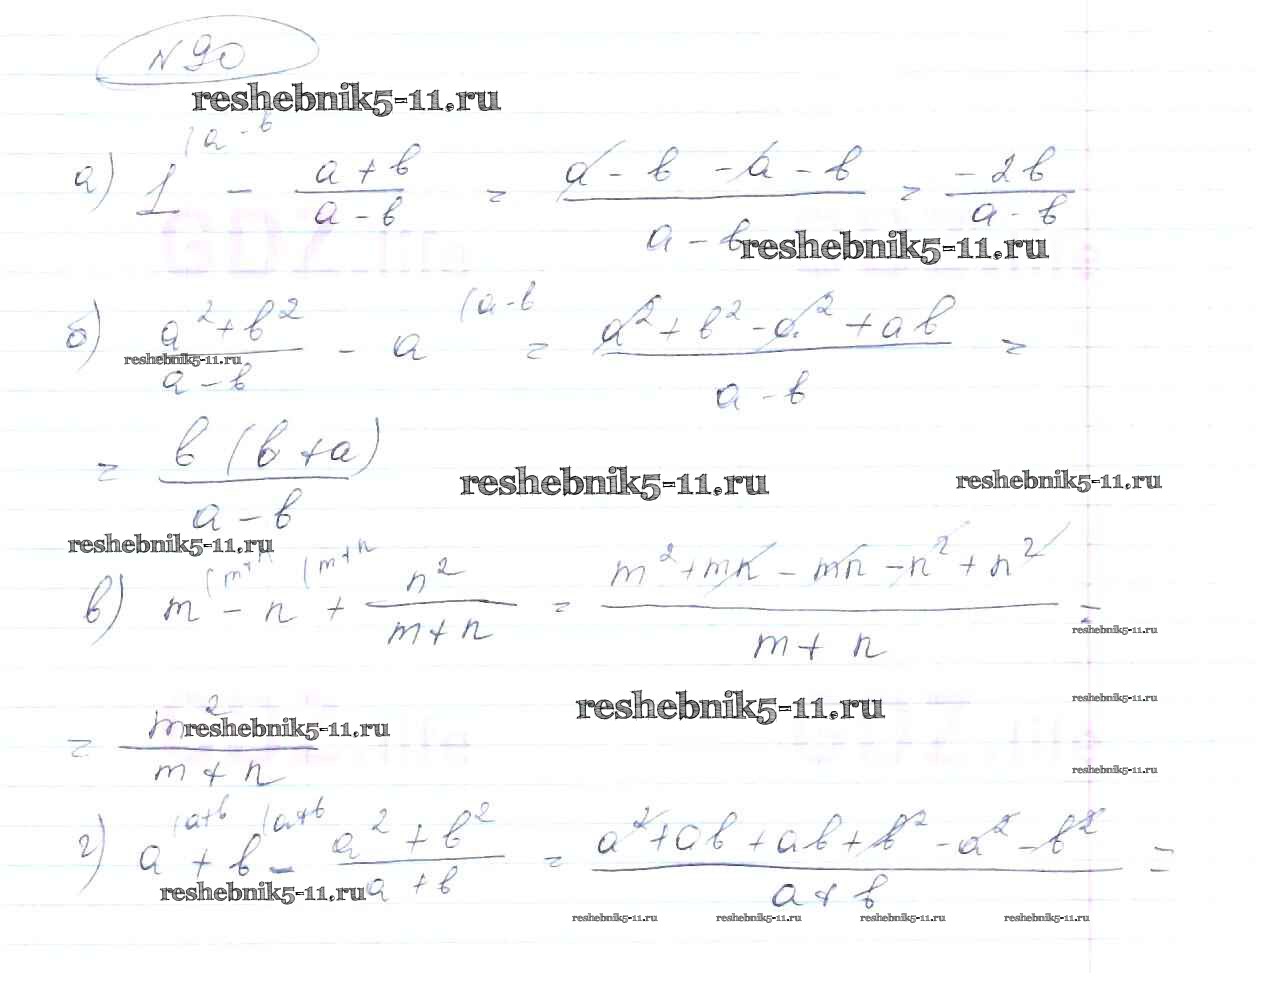 №90
reshebnik5-11.ru
а) 1 (a-b - (a+b)/(a-b) = (a - b - a - b)/(a - b) = (-2b)/(a-b)
reshebnik5-11.ru
б) (a²+b²)/(a-b) - a (a-b = (a²+b²-a²+ab)/(a-b) =
reshebnik5-11.ru
= (b(b+a))/(a-b)
reshebnik5-11.ru reshebnik5-11.ru
reshebnik5-11.ru
в) m (m+n - n (m+n + n²/(m+n) = (m²+mn-mn-n²+n²)/(m+n) =
reshebnik5-11.ru
reshebnik5-11.ru reshebnik5-11.ru
= m²/(m+n)
reshebnik5-11.ru
reshebnik5-11.ru
г) a (a+b + b (a+b - (a²+b²)/(a+b) = (a²+ab+ab+b²-a²-b²)/(a+b) =
reshebnik5-11.ru
reshebnik5-11.ru reshebnik5-11.ru reshebnik5-11.ru reshebnik5-11.ru